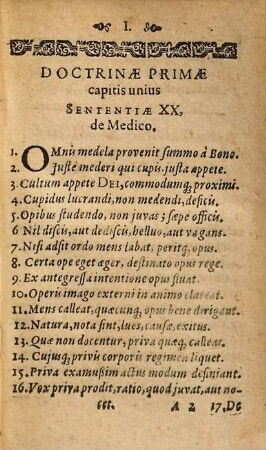 I.
DOCTRINÆ PRIMÆ
capitis unius
SENTENTIÆ XX,
de Medico.
1. OMnis medela provenit summo à Bono.
2. Juste mederi qui cupis, justa appete.
3. Cultum appete DEI, commodumq; proximi.
4. Cupidus lucrandi, non medendi, deficis.
5. Opibus studendo, non juvas; sæpe officis.
6 Nil discis, aut dediscis, helluo, aut vagans.
7. Nisi adsit ordo mens labat, peritq; opus.
8. Certa ope eget æger, destinato opus rege.
9. Ex antegressa intentione opus fluat.
10. Operis imago externi in animo clareat.
11. Mens calleat, quæcunq; opus bene dirigant.
12. Natura, nota sint, lues, causæ, exitus.
13. Quæ non docentur, priva quæq; calleat.
14. Cujusq; privũ corporis regimen liquet.
15. Priva examußim actus modum definiant.
16. Vox priva prodit, ratio, quod juvat, aut no-
A 2
17. De